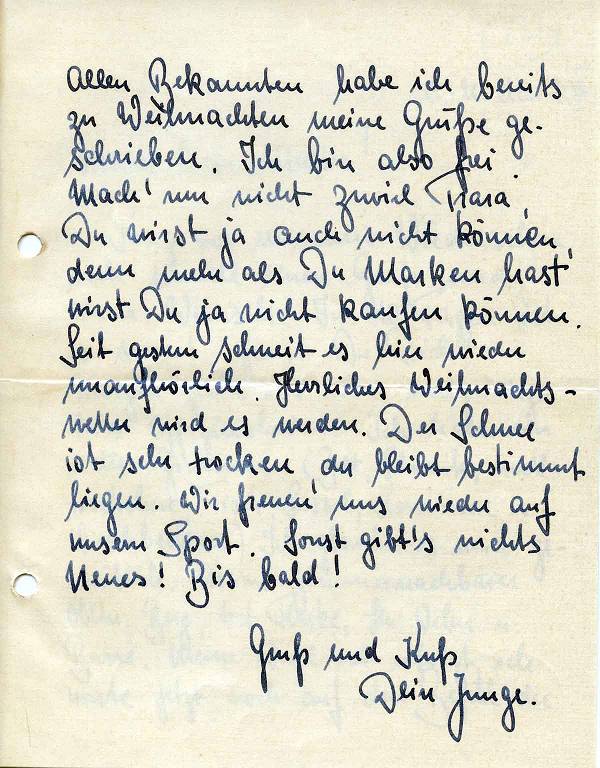 Allen Bekannten habe ich bereits
zu Weihnachten meine Grüße ge-
schrieben. Ich bin also frei
Mach' nun nicht zuviel Trara,
Du wirst ja auch nicht können,
denn mehr als Du Marken hast'
wirst Du ja nicht kaufen können.
Seit gestern schneit es hier wieder
unaufhörlich. Herrliches Weihnachts-
wetter wird es werden. Der Schnee
ist sehr trocken, der bleibt bestimmt
liegen. Wir freuen uns wieder auf
unsern Sport. Sonst gibt's nichts
Neues! Bis bald!
Gruß und Kuß
Dein Junge.